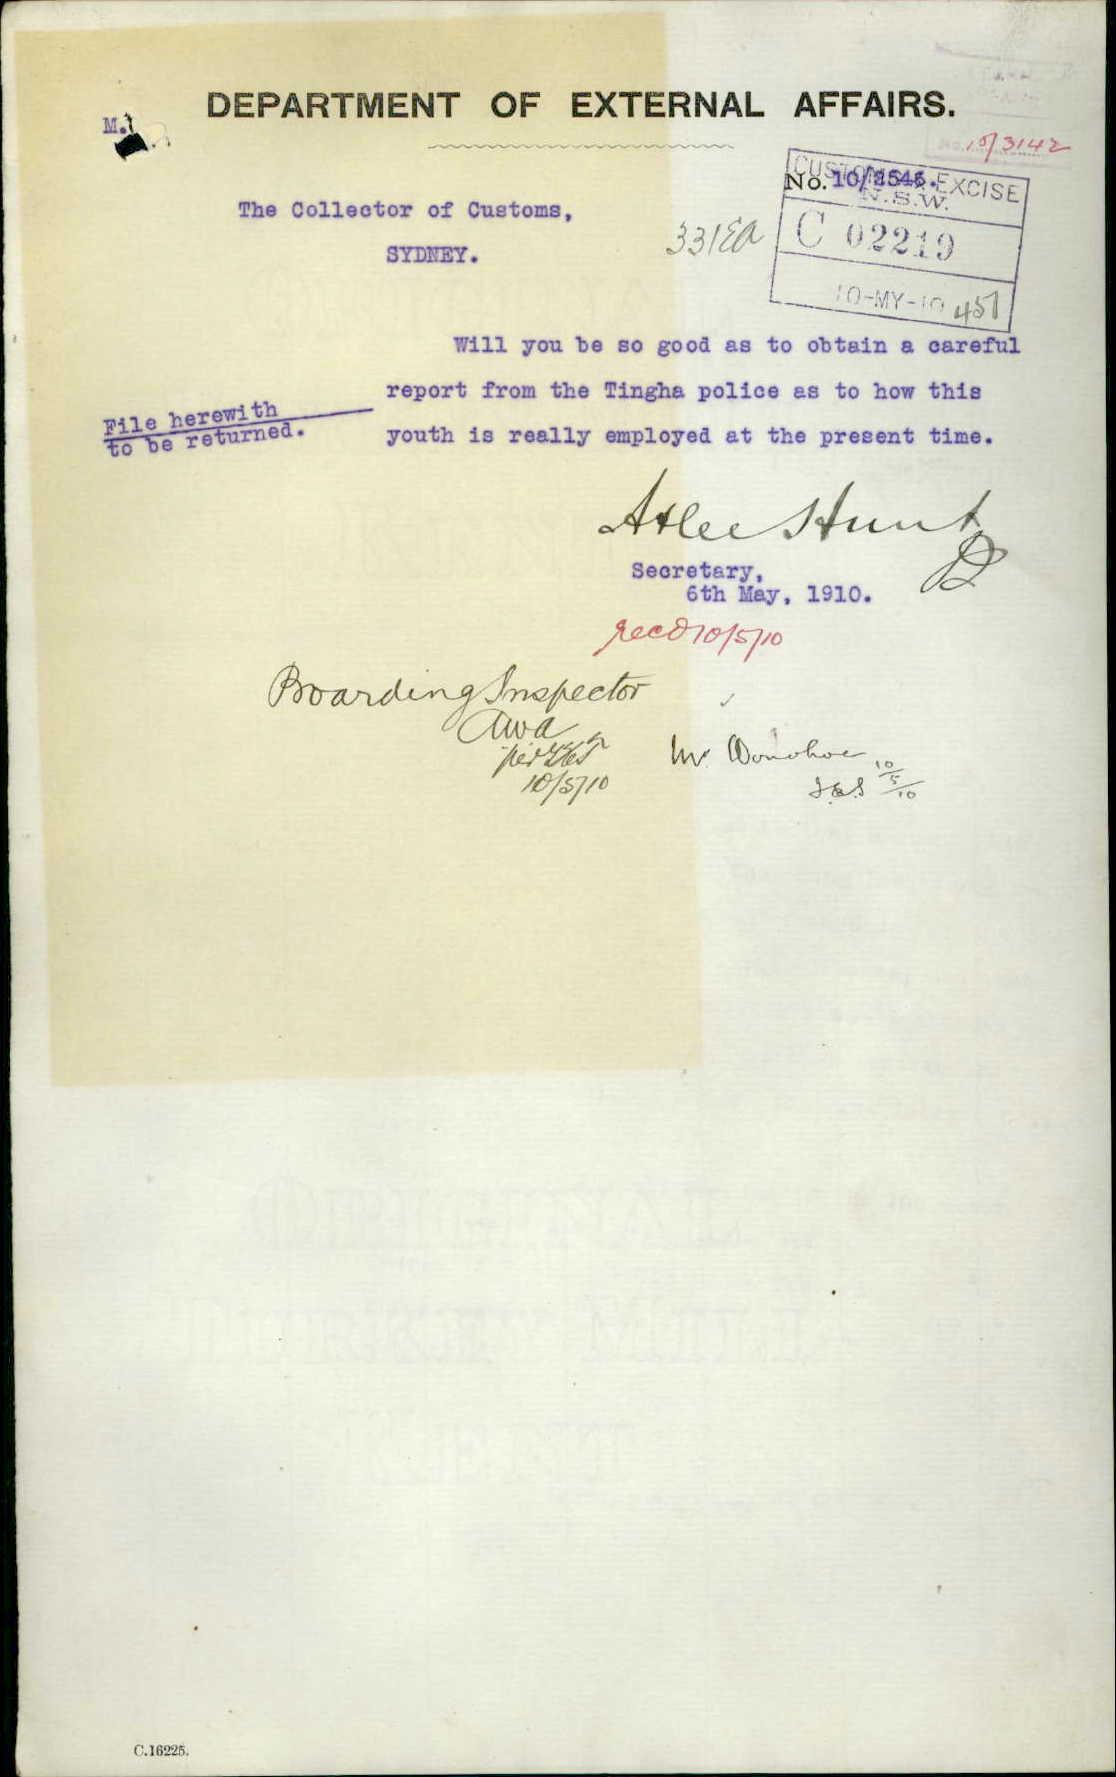 DEPARTMENT OF EXTERNAL AFFAIRS.
M.
10/3142
CUSTOMS & EXCISE
No. 10/2546.
N.S.W.
The Collector of Customs,
SYDNEY.
C 02219
10-MY-10 451
Will you be so good as to obtain a careful
report from the Tingha police as to how this
youth is really employed at the present time.
File herewith
to be returned.
Atlee Hunt
Secretary,
6th May, 1910.
Recd 10/5/10
Boarding Inspector
10/5/10
Mr. Donohoe
10/5/10
C.16225.